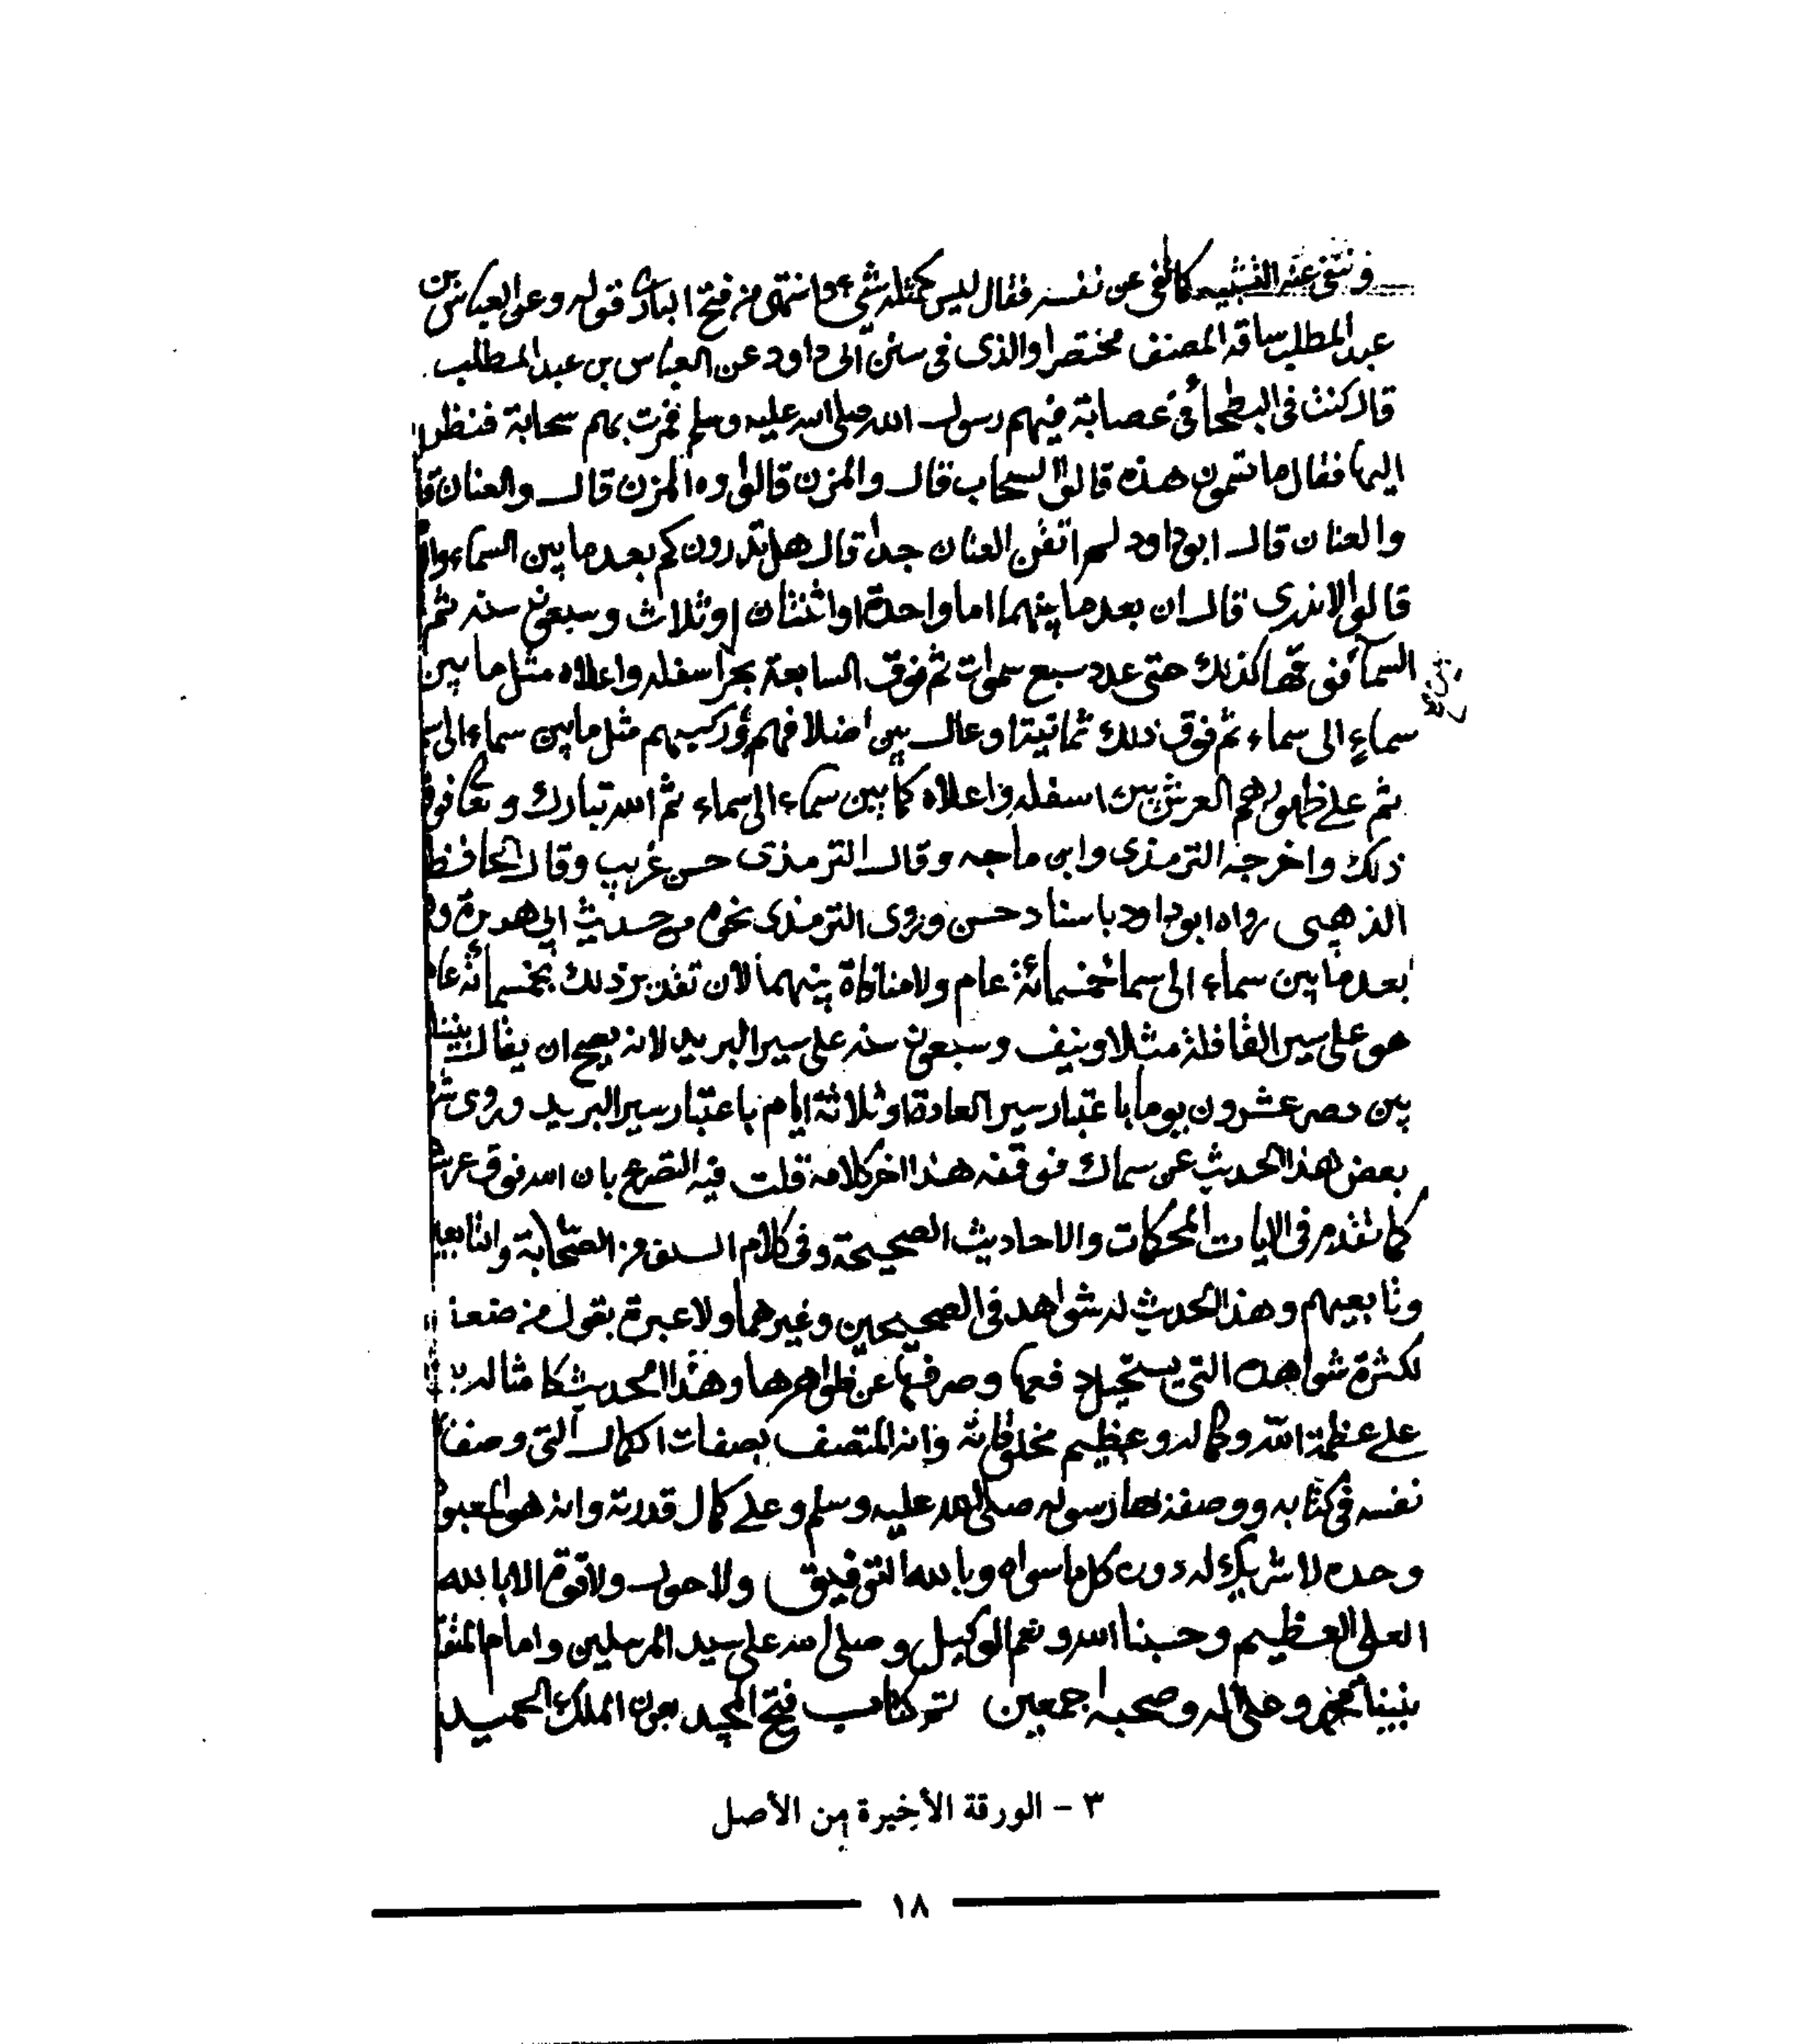 وننفى عنه التشبيه كما نفى عن نفسه فقال ليس كمثله شيء انتهى من فتح البارى قوله وعن العباس بن
عبد المطلب ساقه المصنف مختصرا والذى فى سنن ابى داود عن العباس بن عبد المطلب
قال كنت فى البطحاء فى عصابة فيهم رسول الله صلى الله عليه وسلم فمرت بهم سحابة فنظر
اليها فقال ما تسمون هذه قالوا السحاب قال والمزن قالوا والمزن قال والعنان قا
والعنان قال ابو داود لم اتقن العنان جدا قال هل تدرون كم بعد ما بين السماء والا
قالوا لا ندرى قال ان بعد ما بينهما اما واحدة او اثنتان او ثلاث وسبعون سنه ثم
السماء فوقها كذلك حتى عدد سبع سموات ثم فوق السابعة بحر اسفله واعلاه مثل ما بين
سماء الى سماء ثم فوق ذلك ثمانية اوعال بين اضلافهم وركبهم مثل ما بين سماء الى سم
ثم على ظهورهم العرش بين اسفله واعلاه كما بين سماء الى سماء ثم الله تبارك وتعا فوق
ذلك واخرجه الترمذى وابن ماجه وقال الترمذى حسن غريب وقال الحافظ
الذهبى رواه ابو داود باسناد حسن وروى الترمذى نحوه من حديث ابى هريرة و
بعد ما بين سماء الى سماء خمسمائة عام ولا منافاة بينهما لان تقدير ذلك بخمسمائة عا
هو على سير القافلة مثلا ونيف وسبعون سنه على سير البريد لانه يصح ان يقال بيننا
بين مصر عشرون يوما باعتبار سير العادة وثلاثة ايام باعتبار سير البريد وروى شر
بعض هذا الحديث عن سماك فوقفه هذا اخر كلامه قلت فيه التصريح بان الله فوق عرشه
كما تقدم فى الايات المحكمات والاحاديث الصحيحة وفى كلام السلف من الصحابة والتابعين
وتابعيهم وهذا الحديث له شواهد فى الصحيحين وغيرهما ولا عبرة بقول من ضعفه
لكثرة شواهده التى يستحيل دفعها وصرفها عن ظواهرها وهذا الحديث كامثاله
على عظمة الله وكماله وعظيم مخلوقاته وانه المتصف بصفات الكمال التى وصف
نفسه فى كتابه ووصفه بها رسوله صلى الله عليه وسلم وعلى كمال قدرته وانه هو المعبود
وحده لا شريك له دون كل ما سواه وبالله التوفيق ولا حول ولا قوة الا بالله
العلى العظيم وحسبنا الله ونعم الوكيل وصلى الله على سيد المرسلين وامام المتقين
نبينا محمد وعلى اله وصحبه اجمعين تم كتاب فتح المجيد بعون الملك الحميد
٣ - الورقة الأخيرة من الأصل
١٨